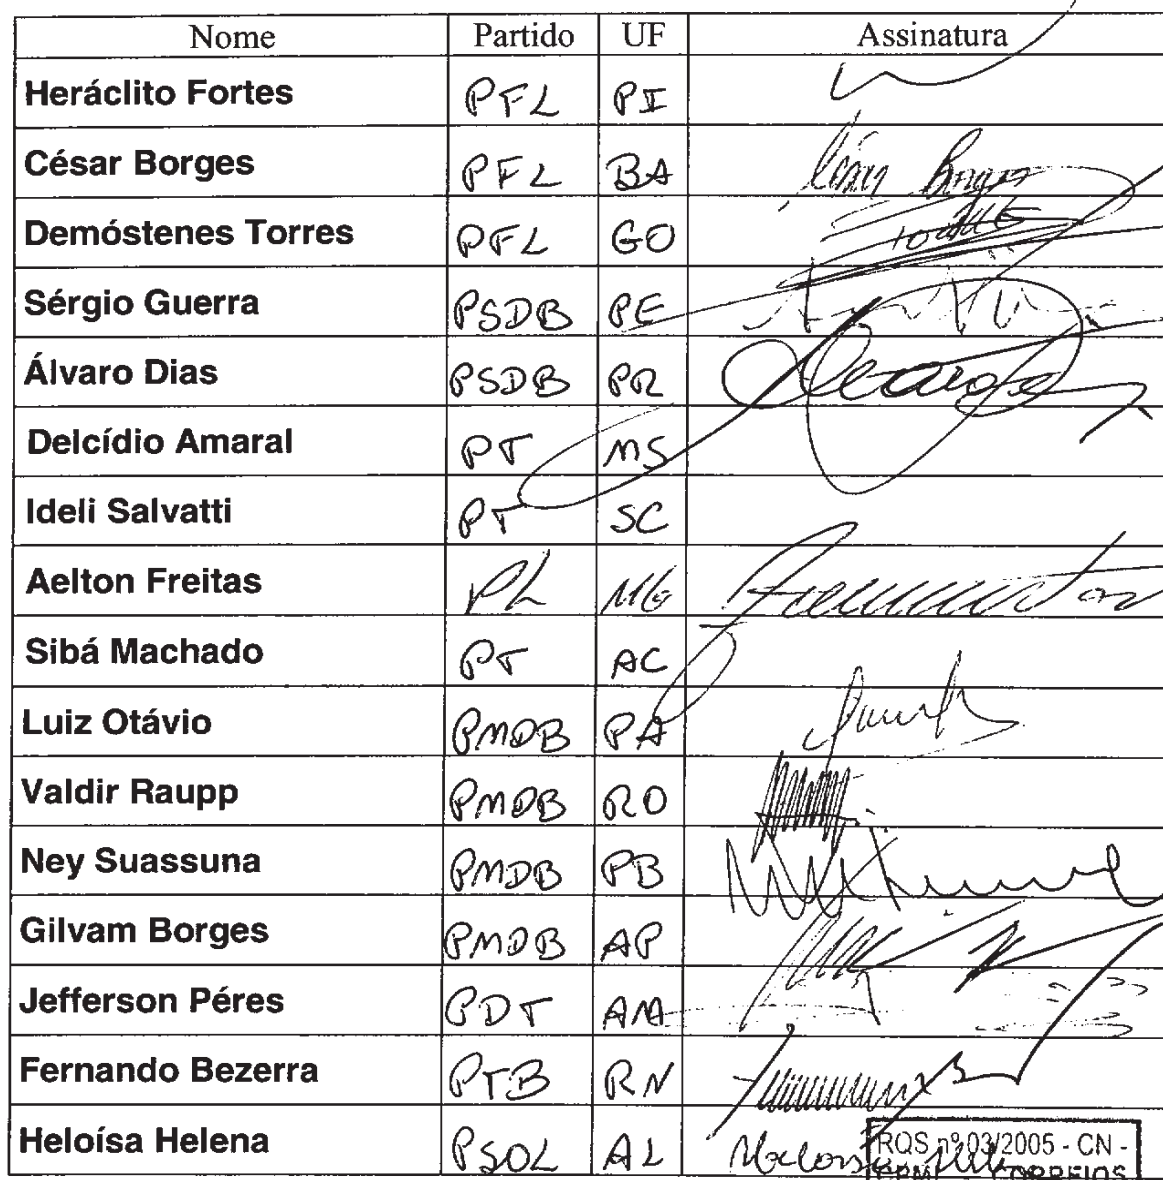 Nome Partido UF Assinatura
Heráclito Fortes PFL PI
César Borges PFL BA César Borges
Demóstenes Torres PFL GO
Sérgio Guerra PSDB PE
Álvaro Dias PSDB PR
Delcídio Amaral PT MS
Ideli Salvatti PT SC
Aelton Freitas PL MG
Sibá Machado PT AC
Luiz Otávio PMDB PA
Valdir Raupp PMDB RO
Ney Suassuna PMDB PB
Gilvam Borges PMDB AP
Jefferson Péres PDT AM
Fernando Bezerra PTB RN
Heloísa Helena PSOL AL
RQS nº 03/2005 - CN -
CPMI CORREIOS